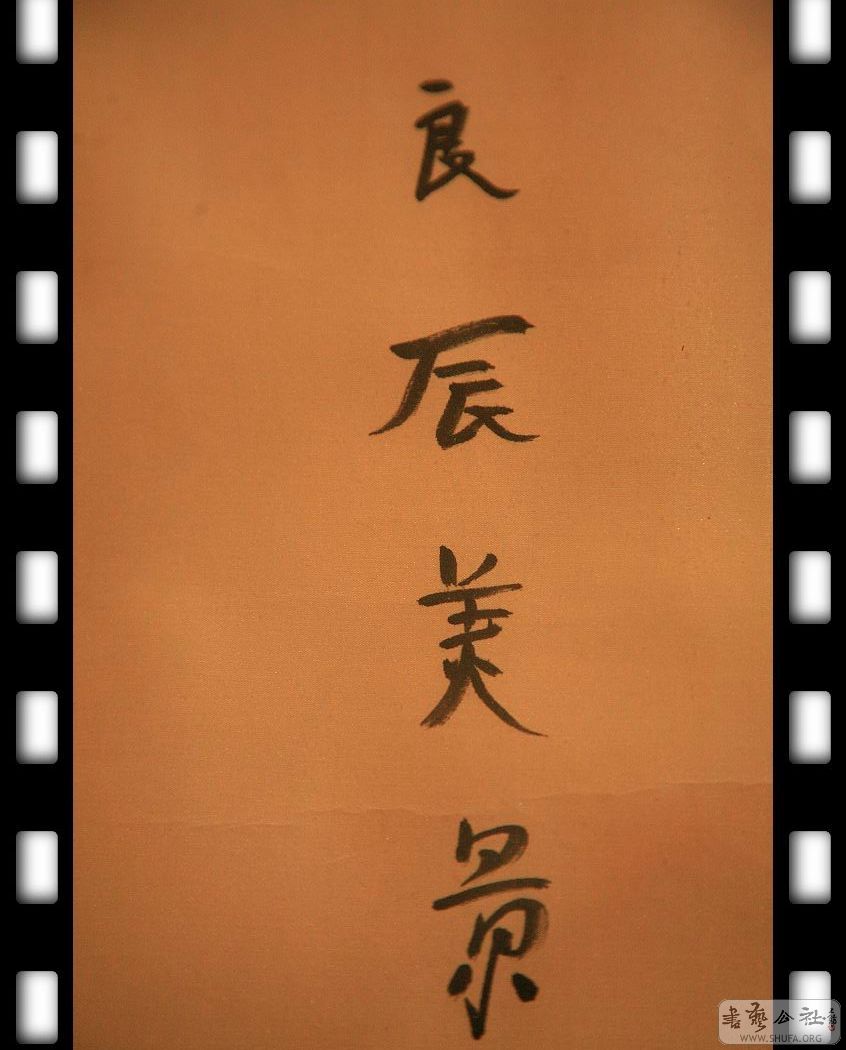 良辰美景
書藝公社
WWW.SHUFA.ORG